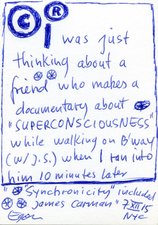 © ®
I was just
thinking about a
friend who makes a
documentary about
"SUPERCONSCIOUSNESS"
while walking on B'way
(W/J.S.) when I ran into
him 10 minutes later
"Synchronicity" included
James Carman 7XII15
NYC